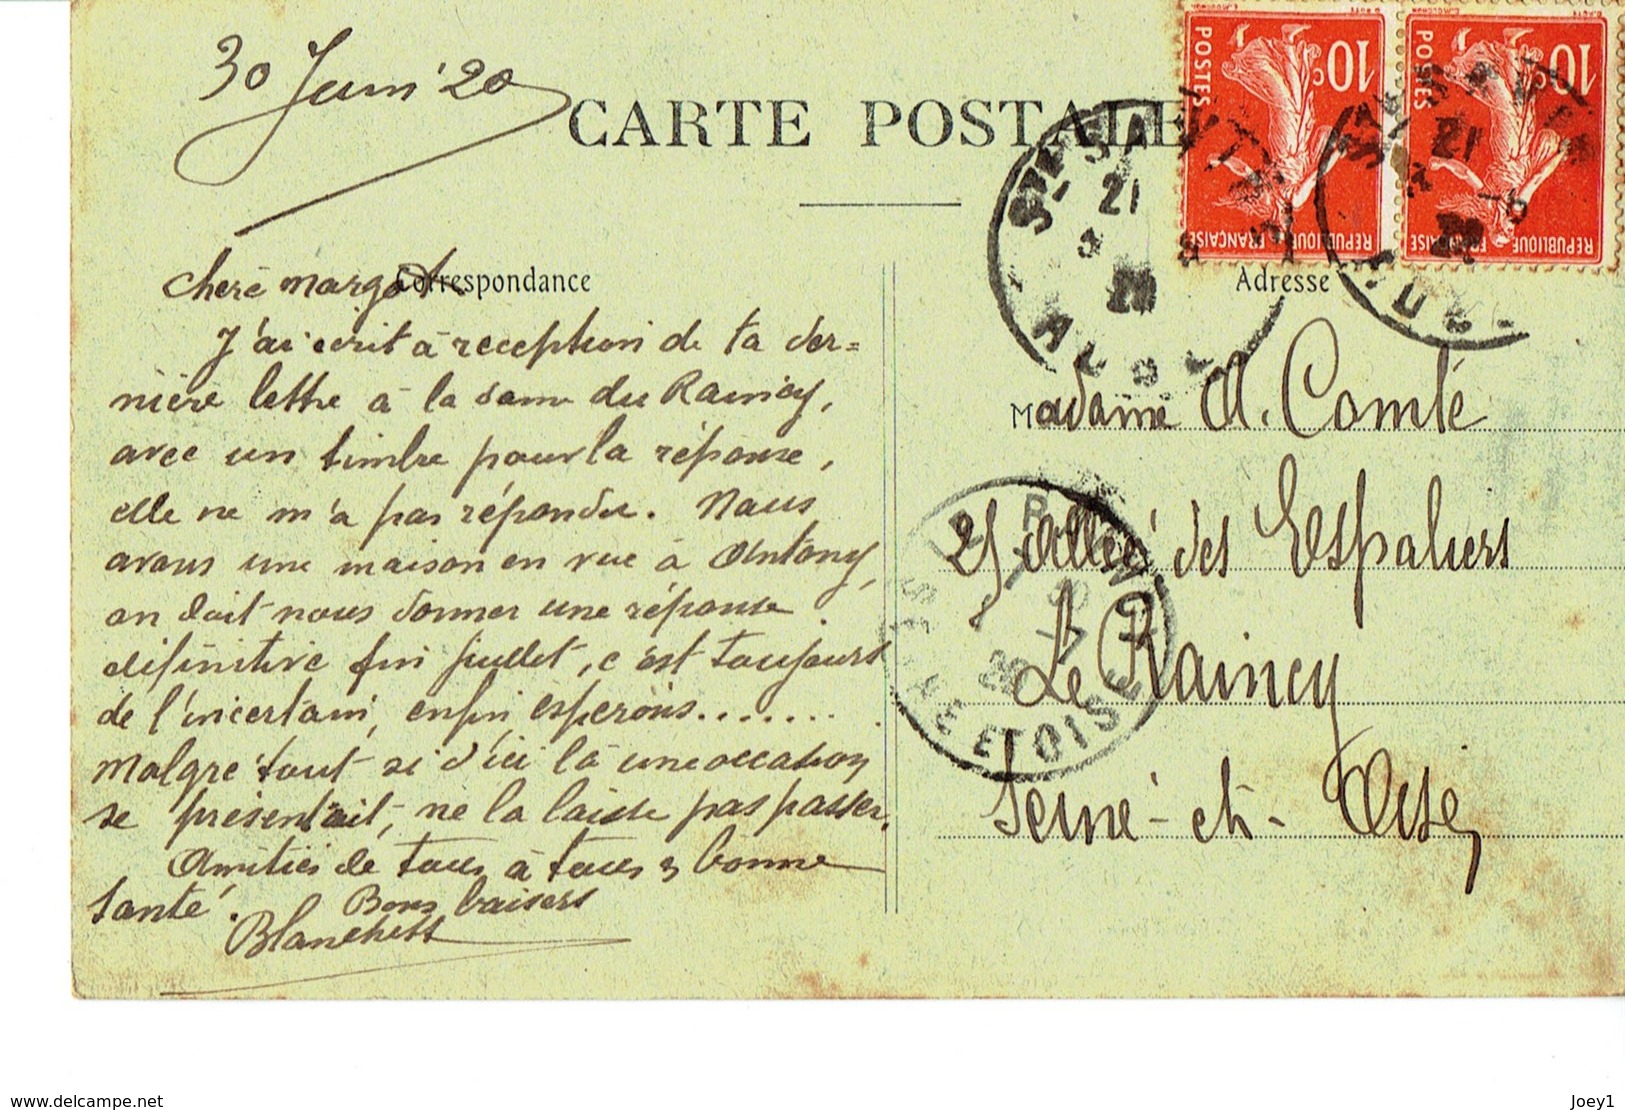 30 Juin '20
CARTE POSTALE
Correspondance
Adresse
Chère Margot
J'ai écrit à reception de ta der=
nière lettre à la dame du Raincy,
avec un timbre pour la réponse,
elle ne m'a pas répondu. Nous
avons une maison en vue à Antony,
on doit nous donner une réponse
définitive fin Juillet, c'est toujours
de l'incertain, enfin espérons.......
Malgré tout si d'ici là une occasion
se présentait, ne la laisse pas passer.
Amitiés de tous à tous & bonne
Santé. Bons baisers
Blanchett
Madame A. Comte
25 Allée des Espaliers
Le Raincy
Seine-et-Oise
POSTES 10c
REPUBLIQUE FRANÇAISE
POSTES 10c
REPUBLIQUE FRANÇAISE
21
AUDE
21
LE RAINCY
SEINE ET OISE
delcampe.net
Joey1